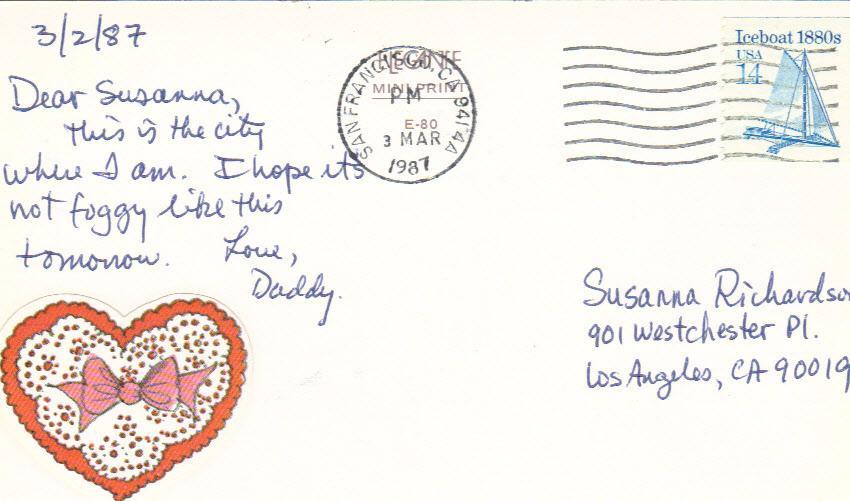 3/2/87
Dear Susanna,
this is the city
where I am. I hope it's
not foggy like this
tomorrow. Love,
Daddy.
ELEGANTE
MINI PRINT
E-80
SAN FRANCISCO, CA 941 4A
PM
3 MAR
1987
Iceboat 1880s
USA
14
Susanna Richardson
901 Westchester Pl.
Los Angeles, CA 90019